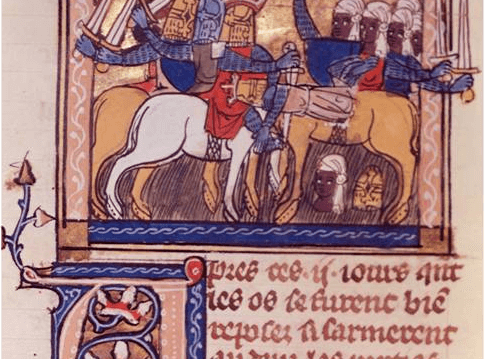 pres ces ·ij· iours que
les os se furent biē
reposei si sarmerent